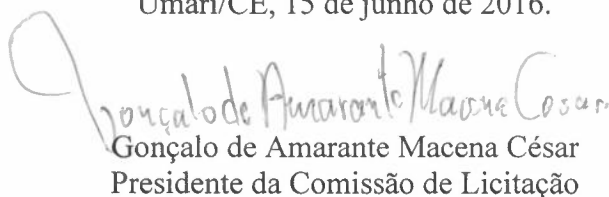 Umari/CE, 15 de junho de 2016.
Gonçalo de Amarante Macena Cesar
Gonçalo de Amarante Macena César
Presidente da Comissão de Licitação